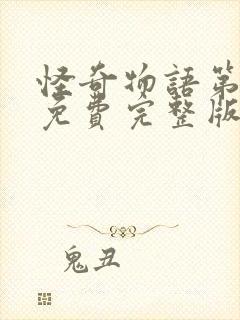 怪奇物語第
免費完整版
鬼丑